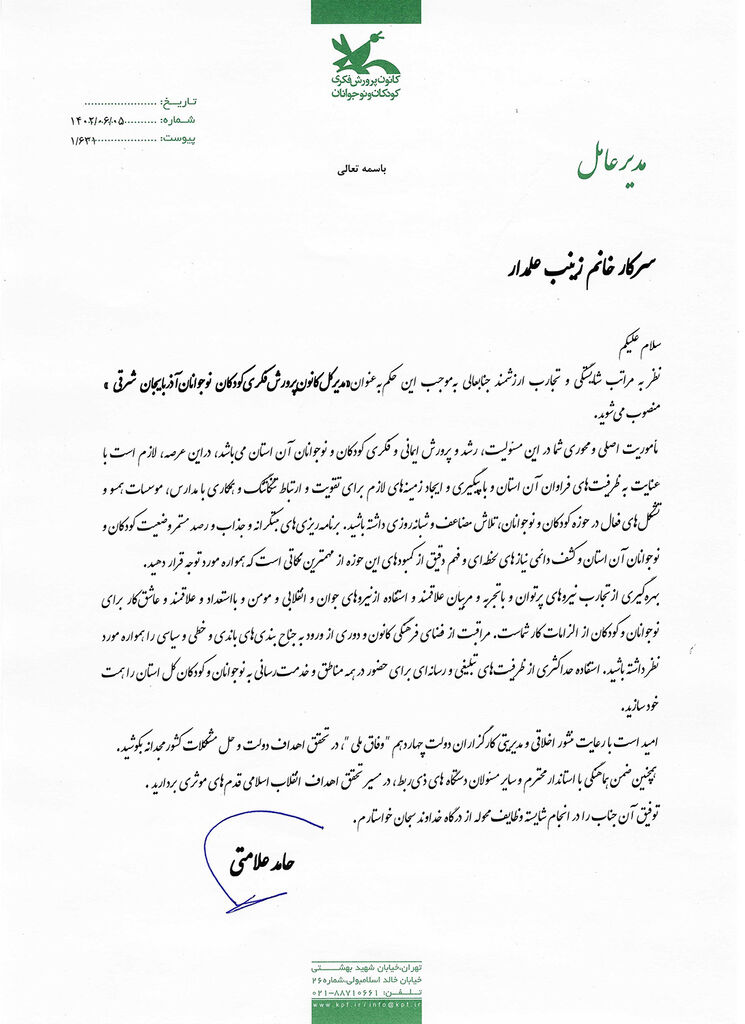 کانون پرورش فکری
کودکان و نوجوانان
تاریـخ: ......................
شمـاره: ..........۱۴۰۲/۰۶/۰۵
پیوست: ..................۱/۶۳۱
مدیر عامل
باسمه تعالی
سرکار خانم زینب علمدار
سلام علیکم
نظر به مراتب شایستگی و تجارب ارزشمند جنابعالی به‌موجب این حکم به عنوان «مدیرکل کانون پرورش فکری کودکان نوجوانان آذربایجان شرقی »
منصوب می‌شوید.
مأموریت اصلی و محوری شما در این مسئولیت، رشد و پرورش ایمانی و فکری کودکان و نوجوانان آن استان می‌باشد، دراین عرصه، لازم است با
عنایت به ظرفیت‌های فراوان آن استان و با پیگیری و ایجاد زمینه‌های لازم برای تقویت و ارتباط تنگاتنگ و همکاری با مدارس، موسسات همسو و
تشکل‌های فعال در حوزه کودکان و نوجوانان، تلاش مضاعف و شبانه‌روزی داشته باشید. برنامه‌ریزی‌های مبتکرانه و جذاب و رصد مستمر وضعیت کودکان و
نوجوانان آن استان و کشف دائمی نیازهای لحظه‌ای و فهم دقیق از کمبودهای این حوزه از مهمترین نکاتی است که همواره مورد توجه قرار دهید.
بهره‌گیری از تجارب نیروهای پرتوان و باتجربه و مربیان علاقمند و استفاده از نیروهای جوان و انقلابی و مومن و بااستعداد و علاقمند و عاشق کار برای
نوجوانان و کودکان از الزامات کار شماست. مراقبت از فضای فرهنگی کانون و دوری از ورود به جناح بندی‌های باندی و خطی و سیاسی را همواره مورد
نظر داشته باشید. استفاده حداکثری از ظرفیت‌های تبلیغی و رسانه‌ای برای حضور در همه مناطق و خدمت‌رسانی به نوجوانان و کودکان کل استان را همت
خود سازید.
امید است با رعایت منشور اخلاقی و مدیریتی کارگزاران دولت چهاردهم "وفاق ملی "، در تحقق اهداف دولت و حل مشکلات کشور مجدانه بکوشید.
همچنین ضمن هماهنگی با استاندار محترم و سایر مسئولان دستگاه های ذی‌ربط، در مسیر تحقق اهداف انقلاب اسلامی قدم‌های موثری بردارید .
توفیق آن جناب را در انجام شایسته وظایف محوله از درگاه خداوند سبحان خواستارم.
حامد علامتی
تهران،خیابان شهید بهشـتـی
خیابان خالد اسلامبولی،شماره۲۶
تـلـفـن: ۸۸۷۱۰۶۶۱-۰۲۱
www.kpf.ir/info@kpf.ir